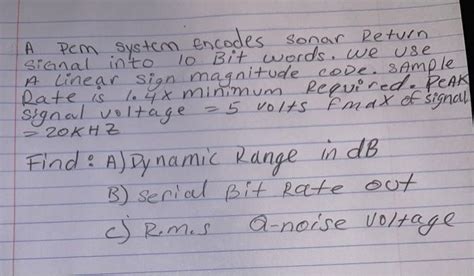 A PCM system encodes sonar Return
signal into 10 Bit words. We use
A Linear sign magnitude CODE. SAMple
Rate is 1.4x minimum Required. PeAK
signal voltage = 5 volts fmax of signal
= 20KHZ
Find: A) Dynamic Range in dB
B) Serial Bit Rate out
C) R.m.s Q-noise voltage